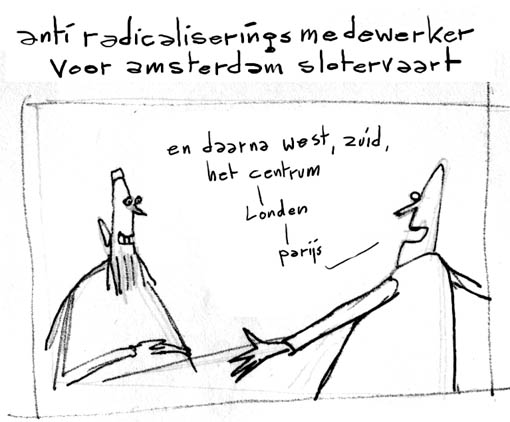 anti radicaliserings medewerker
voor amsterdam slotervaart
en daarna west, zuid,
het centrum
Londen
parijs